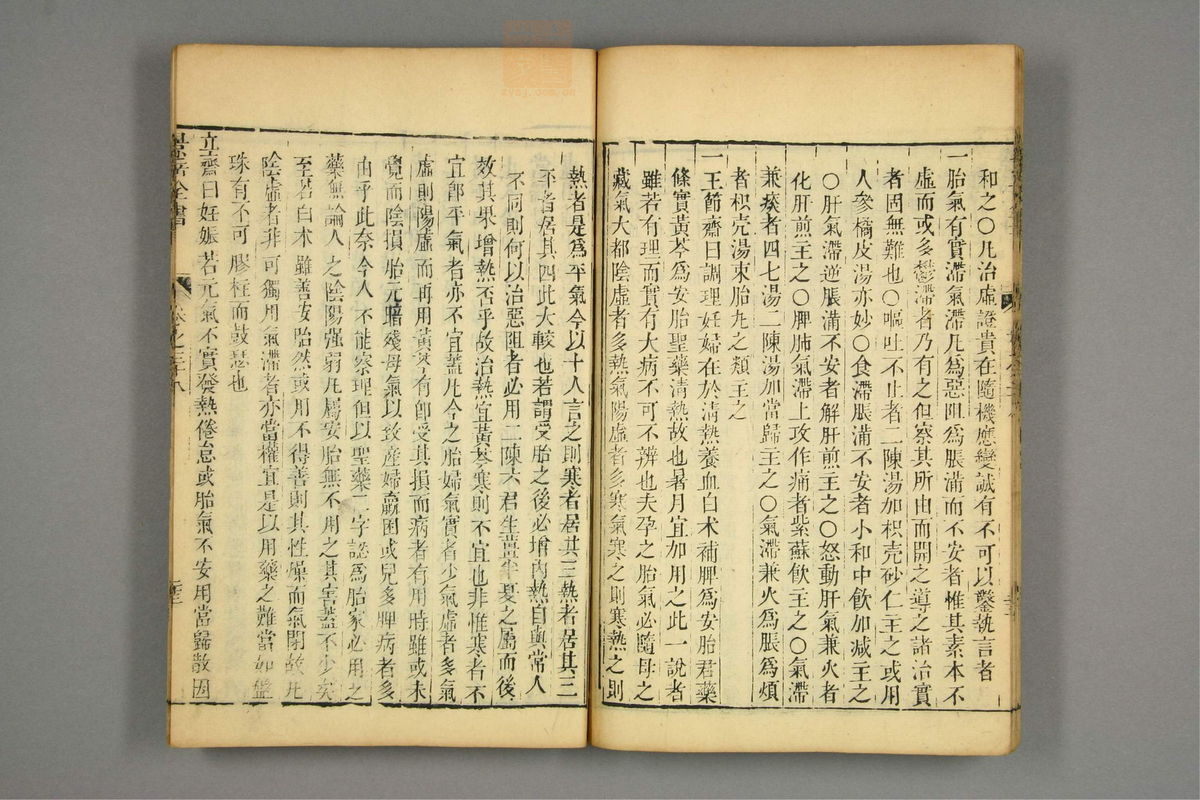 和之〇凡治虛證貴在隨機應變誠有不可以鑿執言者
一胎氣有實滯氣滯凡爲惡阻爲脹滿而不安者惟其素本不
虛而或多鬱滯者乃有之但察其所由而開之導之諸治實
者固無難也〇嘔吐不止者二陳湯加枳壳砂仁主之或用
人參橘皮湯亦妙〇食滯脹滿不安者小和中飲加減主之
〇肝氣滯逆脹滿不安者解肝煎主之〇怒動肝氣兼火者
化肝煎主之〇脾肺氣滯上攻作痛者紫蘇飲主之〇氣滯
兼痰者四七湯二陳湯加當歸主之〇氣滯兼火爲脹爲煩
者枳壳湯束胎丸之類主之
一王節齋曰調理妊婦在於淸熱養血白术補脾爲安胎君藥
條實黃芩爲安胎聖藥淸熱故也暑月宜加用之此一說者
雖若有理而實有大病不可不辨也夫孕之胎氣必隨母之
藏氣大都陰虛者多熱氣陽虛者多寒氣寒之則寒熱之則
熱者是爲平氣今以十人言之則寒者居其三熱者居其三
平者居其四此大較也若謂受胎之後必增內熱自與常人
不同則何以治惡阻者必用二陳六君生薑半夏之屬而後
效其果增熱否乎故治熱宜黃芩寒則不宜也非惟寒者不
宜卽平氣者亦不宜蓋凡今之胎婦氣實者少氣虛者多氣
虛則陽虛而再用黃芩有卽受其損而病者有用時雖或未
覺而陰損胎元暗殘母氣以致產婦羸困或兒多脾病者多
由乎此奈今人不能察理但以聖藥二字認爲胎家必用之
藥無論人之陰陽强弱凡屬安胎無不用之其害蓋不少矣
至若白术雖善安胎然或用不得善則其性燥而氣閉故凡
陰虛者非可獨用氣滯者亦當權宜是以用藥之難當如盤
珠有不可膠柱而鼓瑟也
立齋曰妊娠若元氣不實發熱倦怠或胎氣不安用當歸散因
景岳全書
卷之三十八